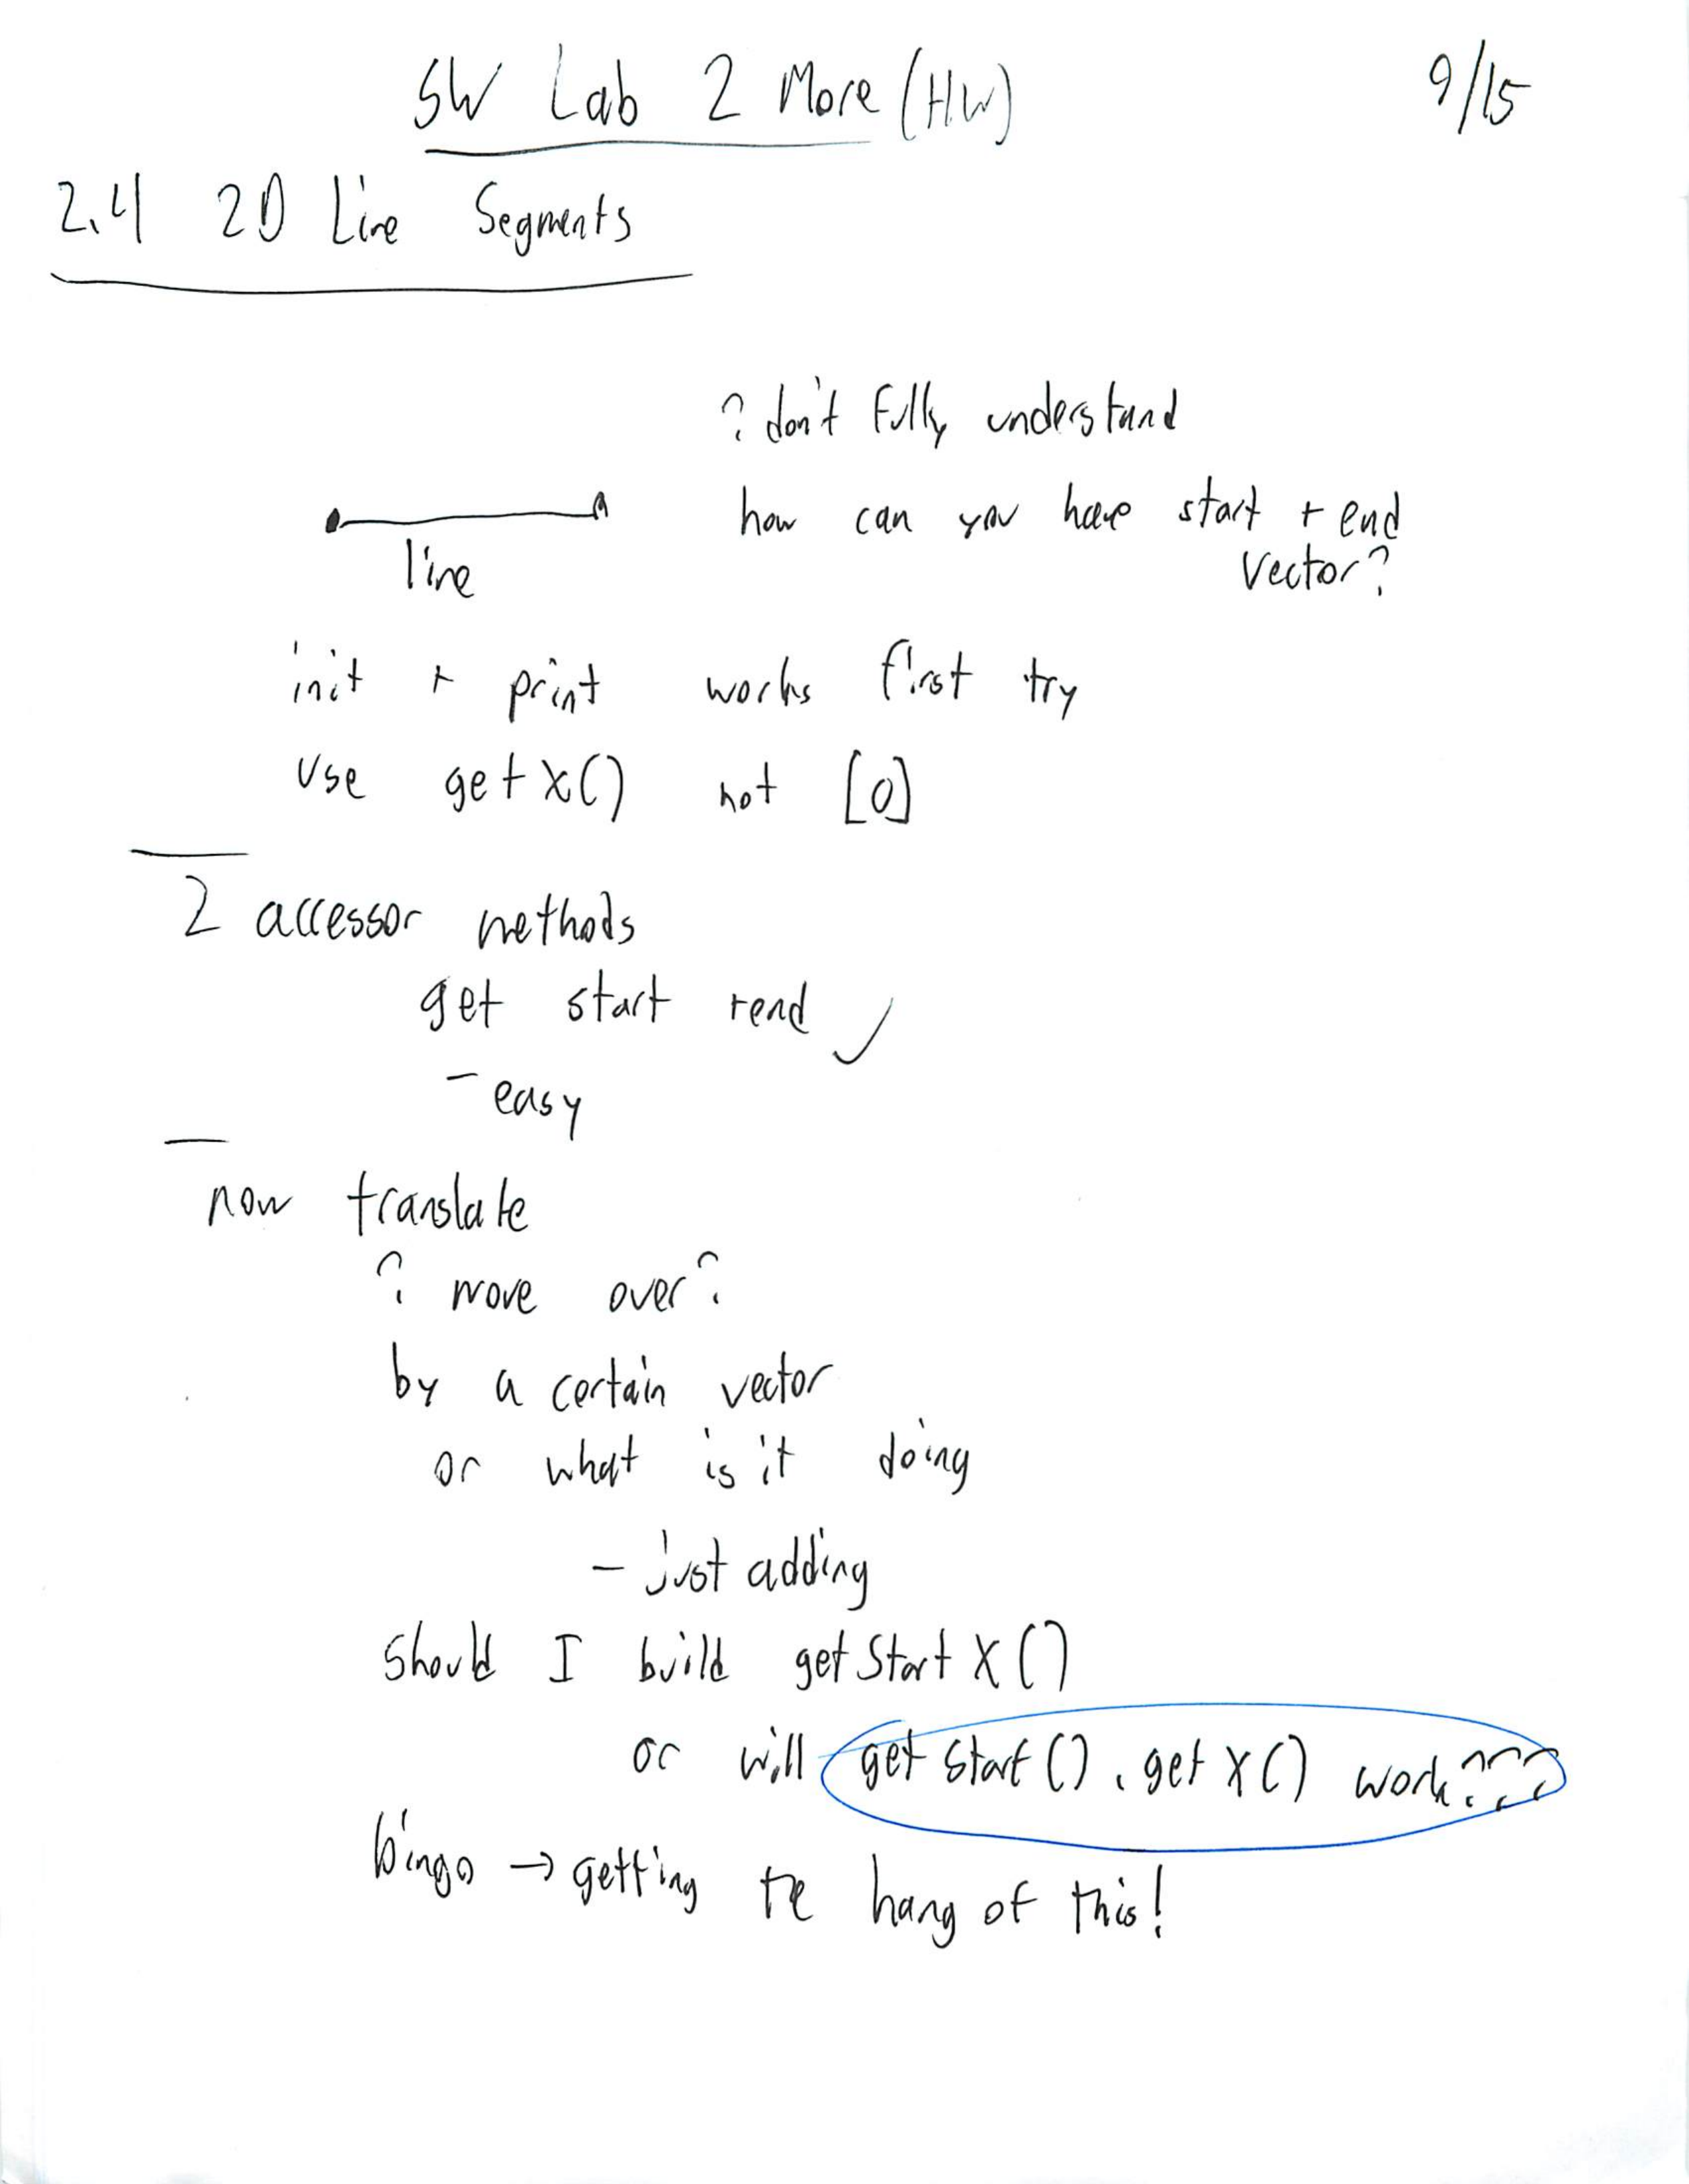 SW Lab 2 More (HW)
9/15
2.4 2D Line Segments
? don't fully understand
how can you have start + end
vector?
line
init + print works first try
use getX() not [0]
2 accessor methods
get start + end ✓
- easy
now translate
? move over?
by a certain vector
or what is it doing
- just adding
should I build getStartX()
or will getStart().getX() work???
bingo → getting the hang of this!